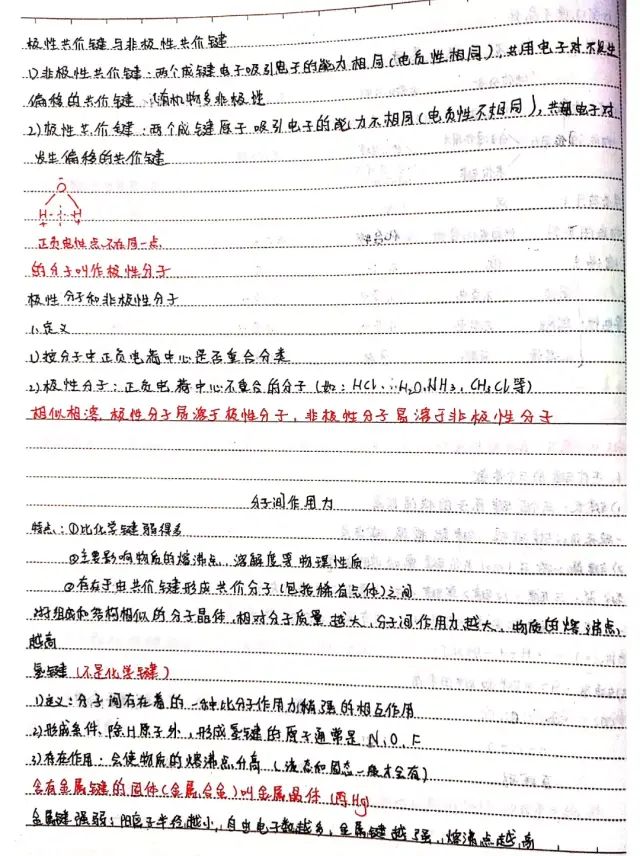 极性共价键与非极性共价键
1)非极性共价键:两个成键电子吸引电子的能力相同(电负性相同),共用电子对不发生
偏移的共价键 (有机物多非极性
2)极性共价键:两个成键原子吸引电子的能力不相同(电负性不相同),共用电子对
发生偏移的共价键
O
H H
+ +
正负电性点不在同一点
的分子叫作极性分子
极性分子和非极性分子
1.定义
1)按分子中正负电荷中心是否重合分类
2)极性分子:正负电荷中心不重合的分子(如:HCl、H₂O、NH₃、CH₃Cl等)
相似相溶,极性分子易溶于极性分子,非极性分子易溶于非极性分子
分子间作用力
特点:①比化学键弱得多
②主要影响物质的熔沸点,溶解度等物理性质
③存在于由共价键形成共价分子(包括稀有气体)之间
对组成和结构相似的分子晶体,相对分子质量越大,分子间作用力越大,物质的熔沸点
越高
氢键(不是化学键)
1)定义:分子间存在着的一种比分子作用力稍强的相互作用
2)形成条件,除H原子外,形成氢键的原子通常是N、O、F
3)存在作用:会使物质的熔沸点升高(液态和固态一般才会有)
含有金属键的固体(金属,合金)叫金属晶体(丙Hg)
金属键强弱:阳离子半径越小,自由电子数越多,金属键越强,熔沸点越高